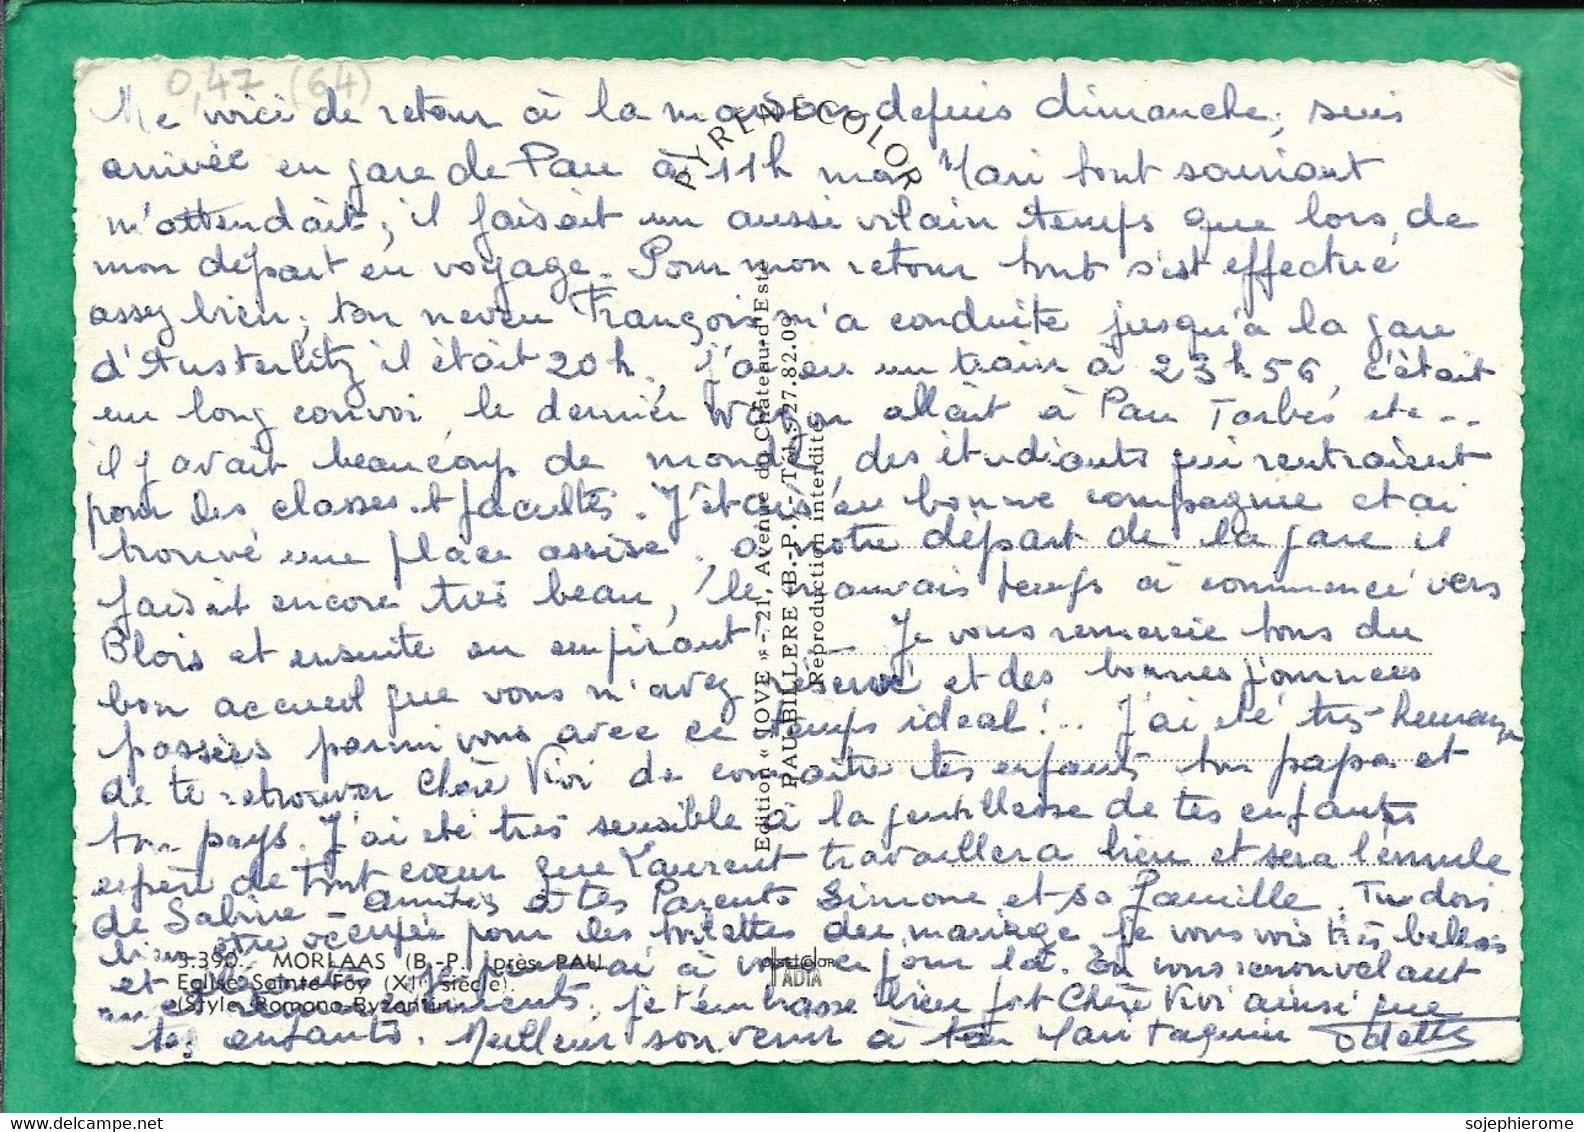 0,47 (64)
Me voici de retour à la maison depuis dimanche, suis
arrivée en gare de Pau à 11h mon Mari tout souriant
m'attendait, il faisait un aussi vilain temps que lors de
mon départ en voyage. Pour mon retour tout s'est effectué
assez bien, ton neveu François m'a conduite jusqu'à la gare
d'Austerlitz il était 20h, j'ai eu un train à 23h56, c'était
un long convoi, le dernier wagon allait à Pau Tarbes etc...
il y avait beaucoup de monde, des étudiants qui rentraient
pour les classes et facultés. J'étais en bonne compagnie et ai
trouvé une place assise, à notre départ de la gare il
faisait encore très beau, le mauvais temps à commencé vers
Blois et ensuite en empirant. Je vous remercie tous du
bon accueil que vous m'avez réservé et des bonnes journées
passées parmi vous avec ce temps idéal!.. J'ai été très heureuse
de te retrouver Chère Vivi de connaître tes enfants ton papa et
ton pays. J'ai été très sensible à la gentillesse de tes enfants
espère de tout cœur que Laurent travaillera bien et sera l'émule
de Sabine - amitiés à tes Parents Simone et sa famille. Tu dois
bien être occupée pour les toilettes du mariage je vous vois très belles
et je penserai à vous ce jour là. En vous renouvelant
remerciements, je t'embrasse bien fort Chère Vivi ainsi que
tes enfants. Meilleur souvenir à ton Mari taquin Odette
PYRENECOLOR
Edition « JOVE » - 21, Avenue du Château-d'Este
PAU-BILLERE (B.-P.) - Tél. : 27.82.09
Reproduction interdite
3.390. - MORLAAS (B.-P.) près PAU
Eglise Sainte-Foy (XIe siècle).
(Style Romano-Byzantin)
IADIA
sojephierome